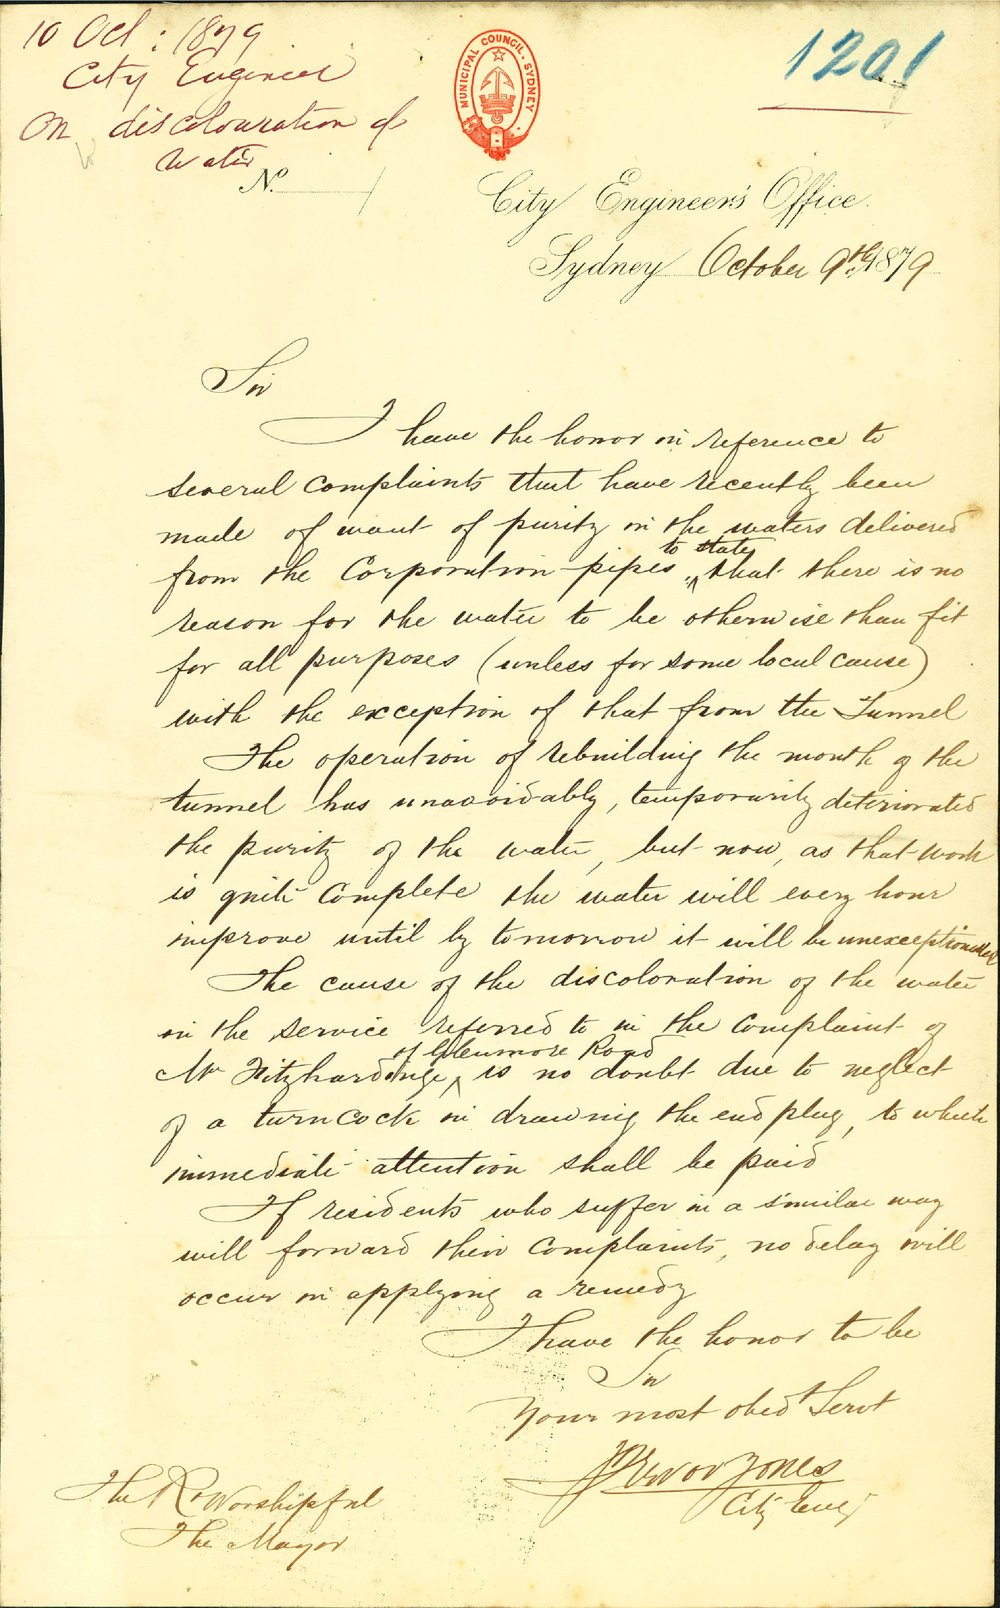 10 Oct: 1879
City Engineer
On discolouration of
Water
No.
1201
MUNICIPAL COUNCIL. SYDNEY
City Engineer's Office.
Sydney October 9th. 1879
Sir
I have the honor in reference to
several complaints that have recently been
made of want of purity in the waters delivered
from the Corporation pipes to state that there is no
reason for the water to be otherwise than fit
for all purposes (unless for some local cause)
with the exception of that from the Tunnel
The operation of rebuilding the mouth of the
tunnel has unavoidably, temporarily deteriorated
the purity of the water, but now, as that work
is quite complete the water will every hour
improve until by tomorrow it will be unexceptionable
The cause of the discoloration of the water
in the service referred to in the complaint of
Mr Fitzhardinge of Glenmore Road is no doubt due to neglect
of a turncock in drawing the end plug, to which
immediate attention shall be paid
If residents who suffer in a similar way
will forward their complaints, no delay will
occur in applying a remedy
I have the honor to be
Sir
Your most obedt Servt
J Trevor Jones
City Engr
The Rt Worshipful
The Mayor